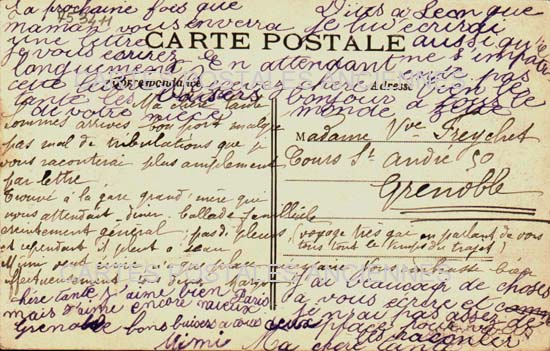 La prochaine fois que
maman vous enverra
une lettre
je vous écrirai
longuement. En attendant
cette
tante les baisers
de votre nièce
Dites à Léon que
je lui écrirai
aussi qu'il
ne s'impatiente
pas
bien le
bonjour à tout le
monde
75 3411
CARTE POSTALE
Correspondance
Adresse
CARTES POSTALES ANCIENNES
Ma chère tante
sommes arrivés bon port malgré
pas mal de tribulations que je
vous raconterai plus amplement
par lettre.
Trouvé à la gare grand'mère qui
nous attendait. dîner, ballade familiale
général; pas de pleurs
et cependant il pleut à seau
Mimi
Affectueusement
chère tante j'aime bien Paris
mais j'aime encore mieux
Grenoble bons baisers à vous deux
Mimi
Madame Vve Freychet
Cours St André 50
Grenoble
(voyage très gai en parlant de vous
tous tout le temps du trajet)
CARTES POSTALES ANCIENNES
J'ai beaucoup de choses
à vous écrire et comme
je n'ai pas assez de
place pour vous
raconter
Ma chère tante